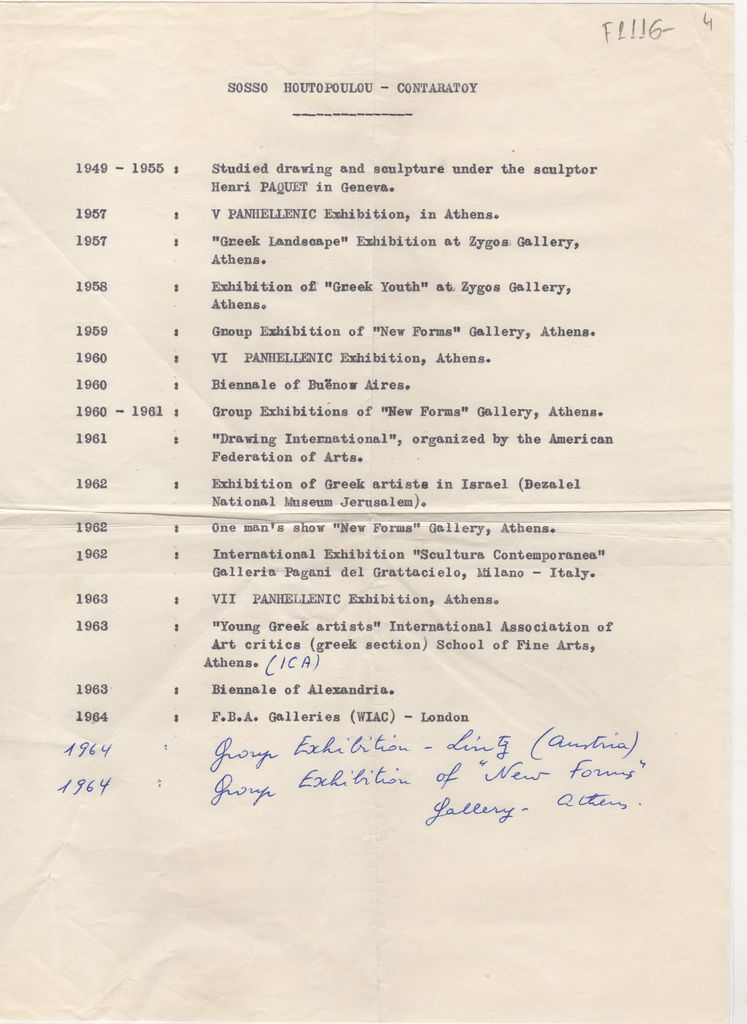 F1116- 4
SOSSO HOUTOPOULOU - CONTARATOY
1949 - 1955 : Studied drawing and sculpture under the sculptor
Henri PAQUET in Geneva.
1957 : V PANHELLENIC Exhibition, in Athens.
1957 : "Greek Landscape" Exhibition at Zygos Gallery,
Athens.
1958 : Exhibition of "Greek Youth" at Zygos Gallery,
Athens.
1959 : Group Exhibition of "New Forms" Gallery, Athens.
1960 : VI PANHELLENIC Exhibition, Athens.
1960 : Biennale of Buënos Aires.
1960 - 1961 : Group Exhibitions of "New Forms" Gallery, Athens.
1961 : "Drawing International", organized by the American
Federation of Arts.
1962 : Exhibition of Greek artists in Israel (Bezalel
National Museum Jerusalem).
1962 : One man's show "New Forms" Gallery, Athens.
1962 : International Exhibition "Scultura Contemporanea"
Galleria Pagani del Grattacielo, Milano - Italy.
1963 : VII PANHELLENIC Exhibition, Athens.
1963 : "Young Greek artists" International Association of
Art critics (greek section) School of Fine Arts,
Athens. (ICA)
1963 : Biennale of Alexandria.
1964 : F.B.A. Galleries (WIAC) - London
1964 : Group Exhibition - Lintz (Austria)
1964 : Group Exhibition of "New Forms"
Gallery - Athens.